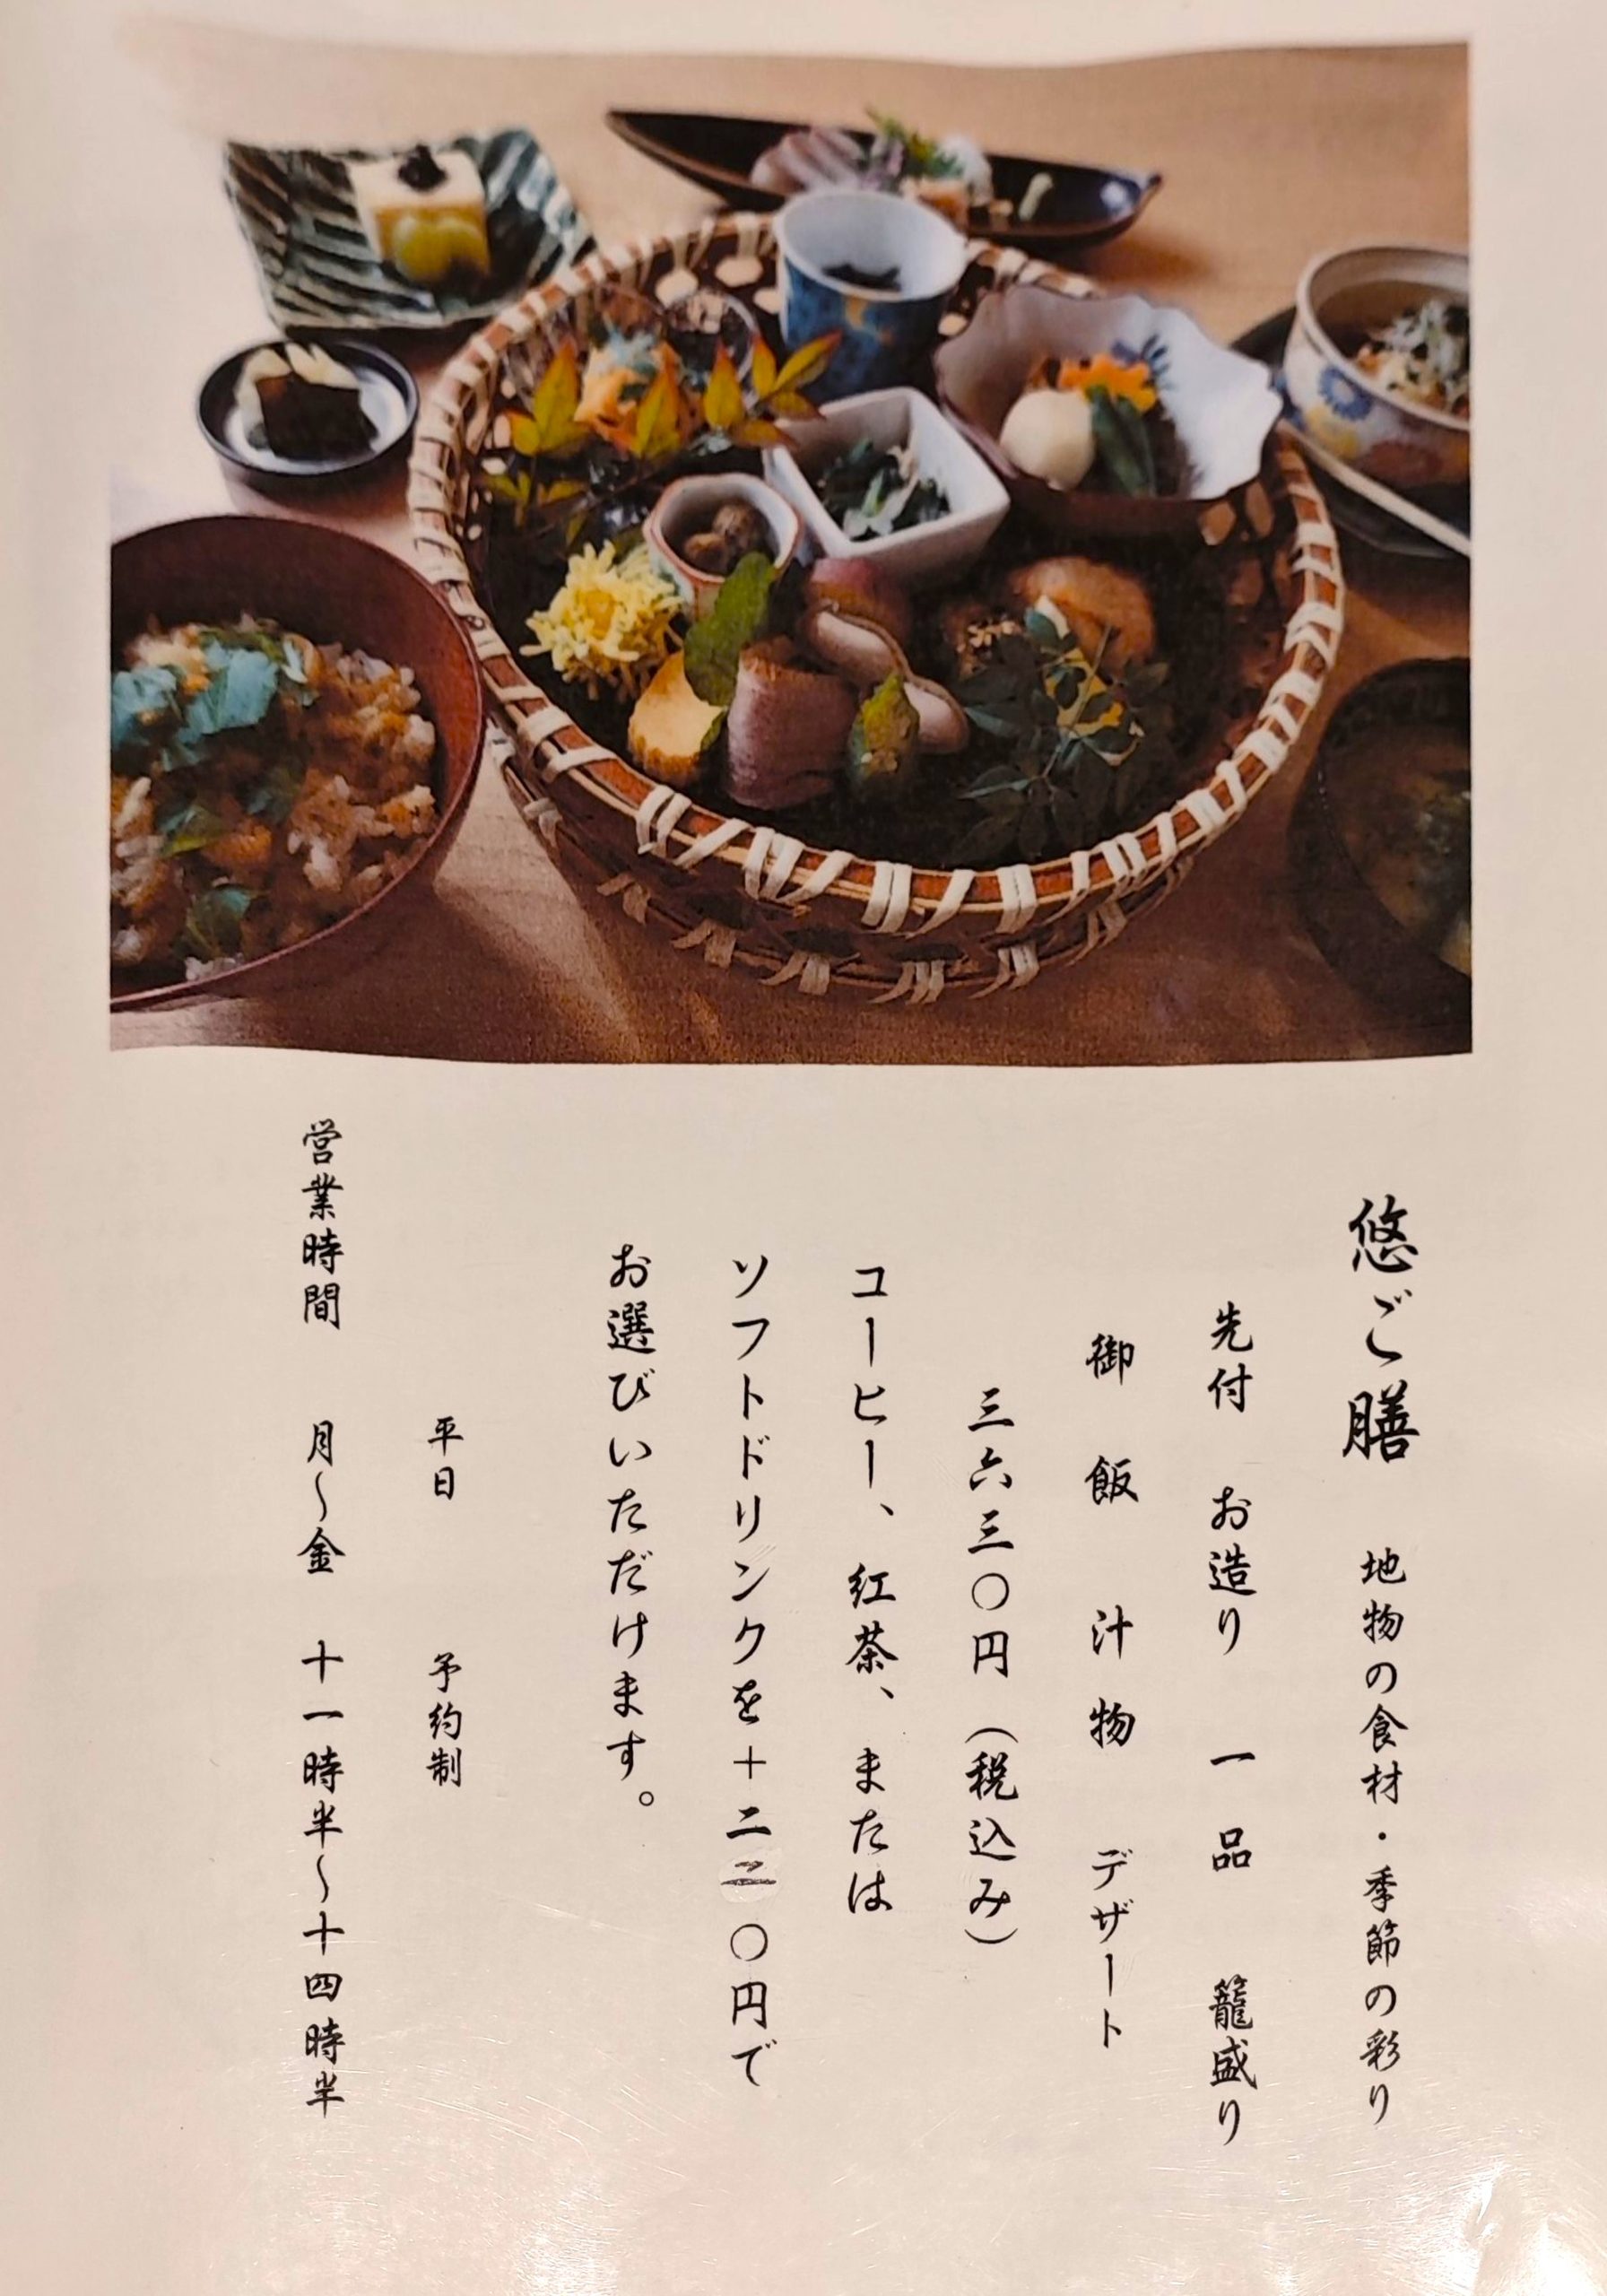 悠ご膳 地物の食材・季節の彩り
先付 お造り 一品 籠盛り
御飯 汁物 デザート
三六三〇円（税込み）
コーヒー、紅茶、または
ソフトドリンクを＋二二〇円で
お選びいただけます。
平日 予約制
営業時間 月～金 十一時半～十四時半